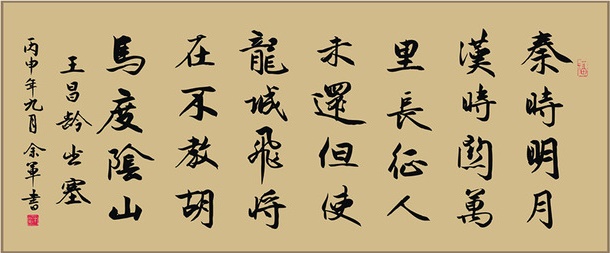 秦時明月
漢時關萬
里長征人
未還但使
龍城飛将
在不教胡
馬度陰山
王昌龄出塞
丙申年九月余軍書